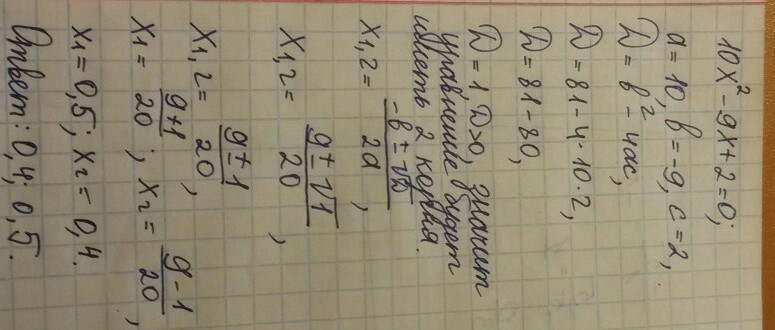 10x² - 9x + 2 = 0;
a = 10, b = -9, c = 2,
D = b² - 4ac,
D = 81 - 4·10·2,
D = 81 - 80,
D = 1 D>0, значит
уравнение будет
иметь 2 корня.
x1,2 = (-b ± √D)/2a,
x1,2 = (9 ± √1)/20,
x1,2 = (9 ± 1)/20,
x1 = (9+1)/20; x2 = (9-1)/20,
x1 = 0,5; x2 = 0,4.
Ответ: 0,4; 0,5.